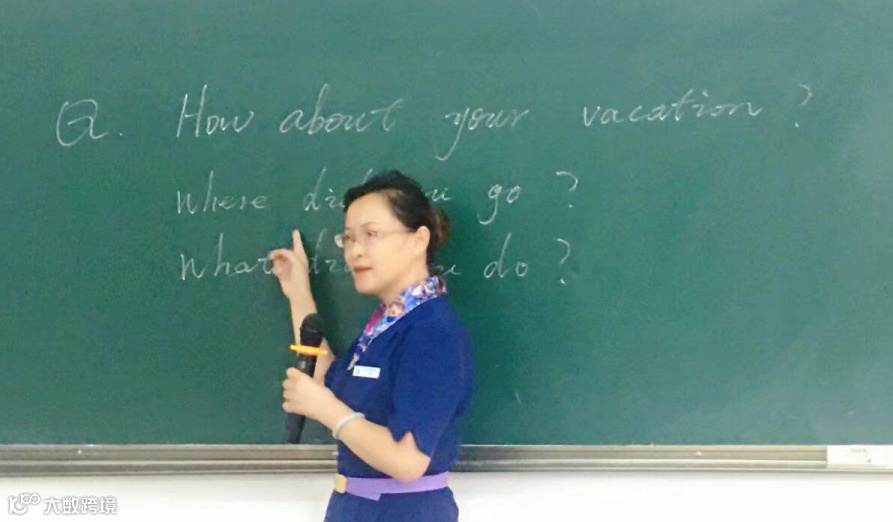 Q. How about your vacation ?
where go ?
do ?
大数跨境